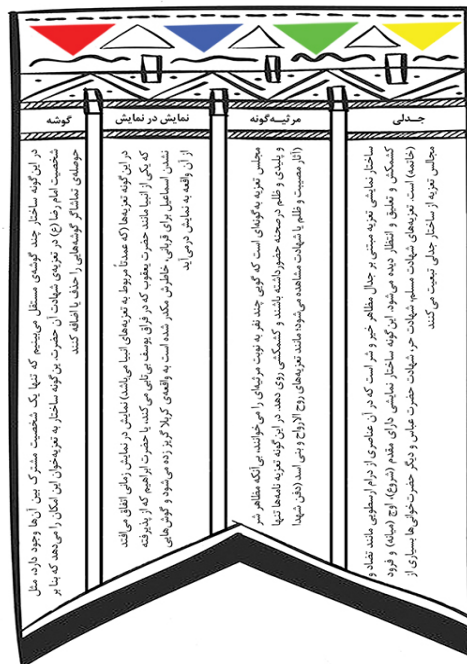 جـدلی
ساختار نمایشی تعزیه مبتنی بر جدال مظاهر خیر و شر است که در آن عناصری از درام ارسطویی مانند تضاد و
کشمکش و تعلیق و انتظار دیده می‌شود. این‌گونه ساختار نمایشی دارای مقدم (شروع)، اوج (میانه) و فرود
(خاتمه) است. تعزیه‌های شهادت مسلم، شهادت حر، شهادت حضرت عباس و دیگر حضرت‌خوانی‌ها بسیاری از
مجالس تعزیه از ساختار جدلی تبعیت می‌کنند
مرثیـه‌گونه
مجلس تعزیه به‌گونه‌ای است که گویی چند نفر به نوبت مرثیه‌ای را می‌خوانند، بی‌آنکه مظاهر شر
و پلیدی و ظلم درصحنه حضورداشته باشند و کشمکشی روی دهد. در این‌گونه تعزیه نامه‌ها تنها
آثار مصیبت و ظلم یا شهادت مشاهده می‌شود؛ مانند تعزیه‌های روح الارواح و بنی اسد (دفن شهدا
نمایش در نمایش
در این گونه تعزیه‌ها (که عمدتاً مربوط به تعزیه‌های انبیا می‌باشد) نمایش در نمایش زمانی اتفاق می‌افتد
که یکی از انبیا مانند حضرت یعقوب که در فراق یوسف بی‌تابی می‌کند، یا حضرت ابراهیم که از پذیرفته
نشدن اسماعیل برای قربانی، خاطرش مکدر شده است به واقعه‌ی کربلا گریز زده می‌شود و گوش‌هایی
از آن واقعه به نمایش درمی‌آید
گوشه
در این گونه ساختار چند گوشه‌ی مستقل می‌بینیم که تنها یک شخصیت مشترک بین آن‌ها وجود دارد، مثل
شخصیت امام رضا (ع) در تعزیه‌ی شهادت آن حضرت. ین گونه ساختار به تعزیه‌خوان این امکان را می‌دهد که بنا بر
حوصله‌ی تماشاگر گوشه‌هایی را حذف یا اضافه کنند